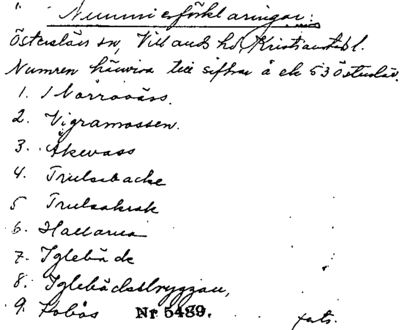 " Nummerförklaringar:
Österslövs sn, Villands hd, Kristianstad l.
Numren hänvisa till siffror å ek 53 Österslöv.
1. Norrevass.
2. Vigramossen.
3. Åkevass
4. Trulsabacke
5 Trulsakrok
6. Hallarna
7. Iglebäck
8. Iglebäcksbryggan,
9. Nr 5489. forts.